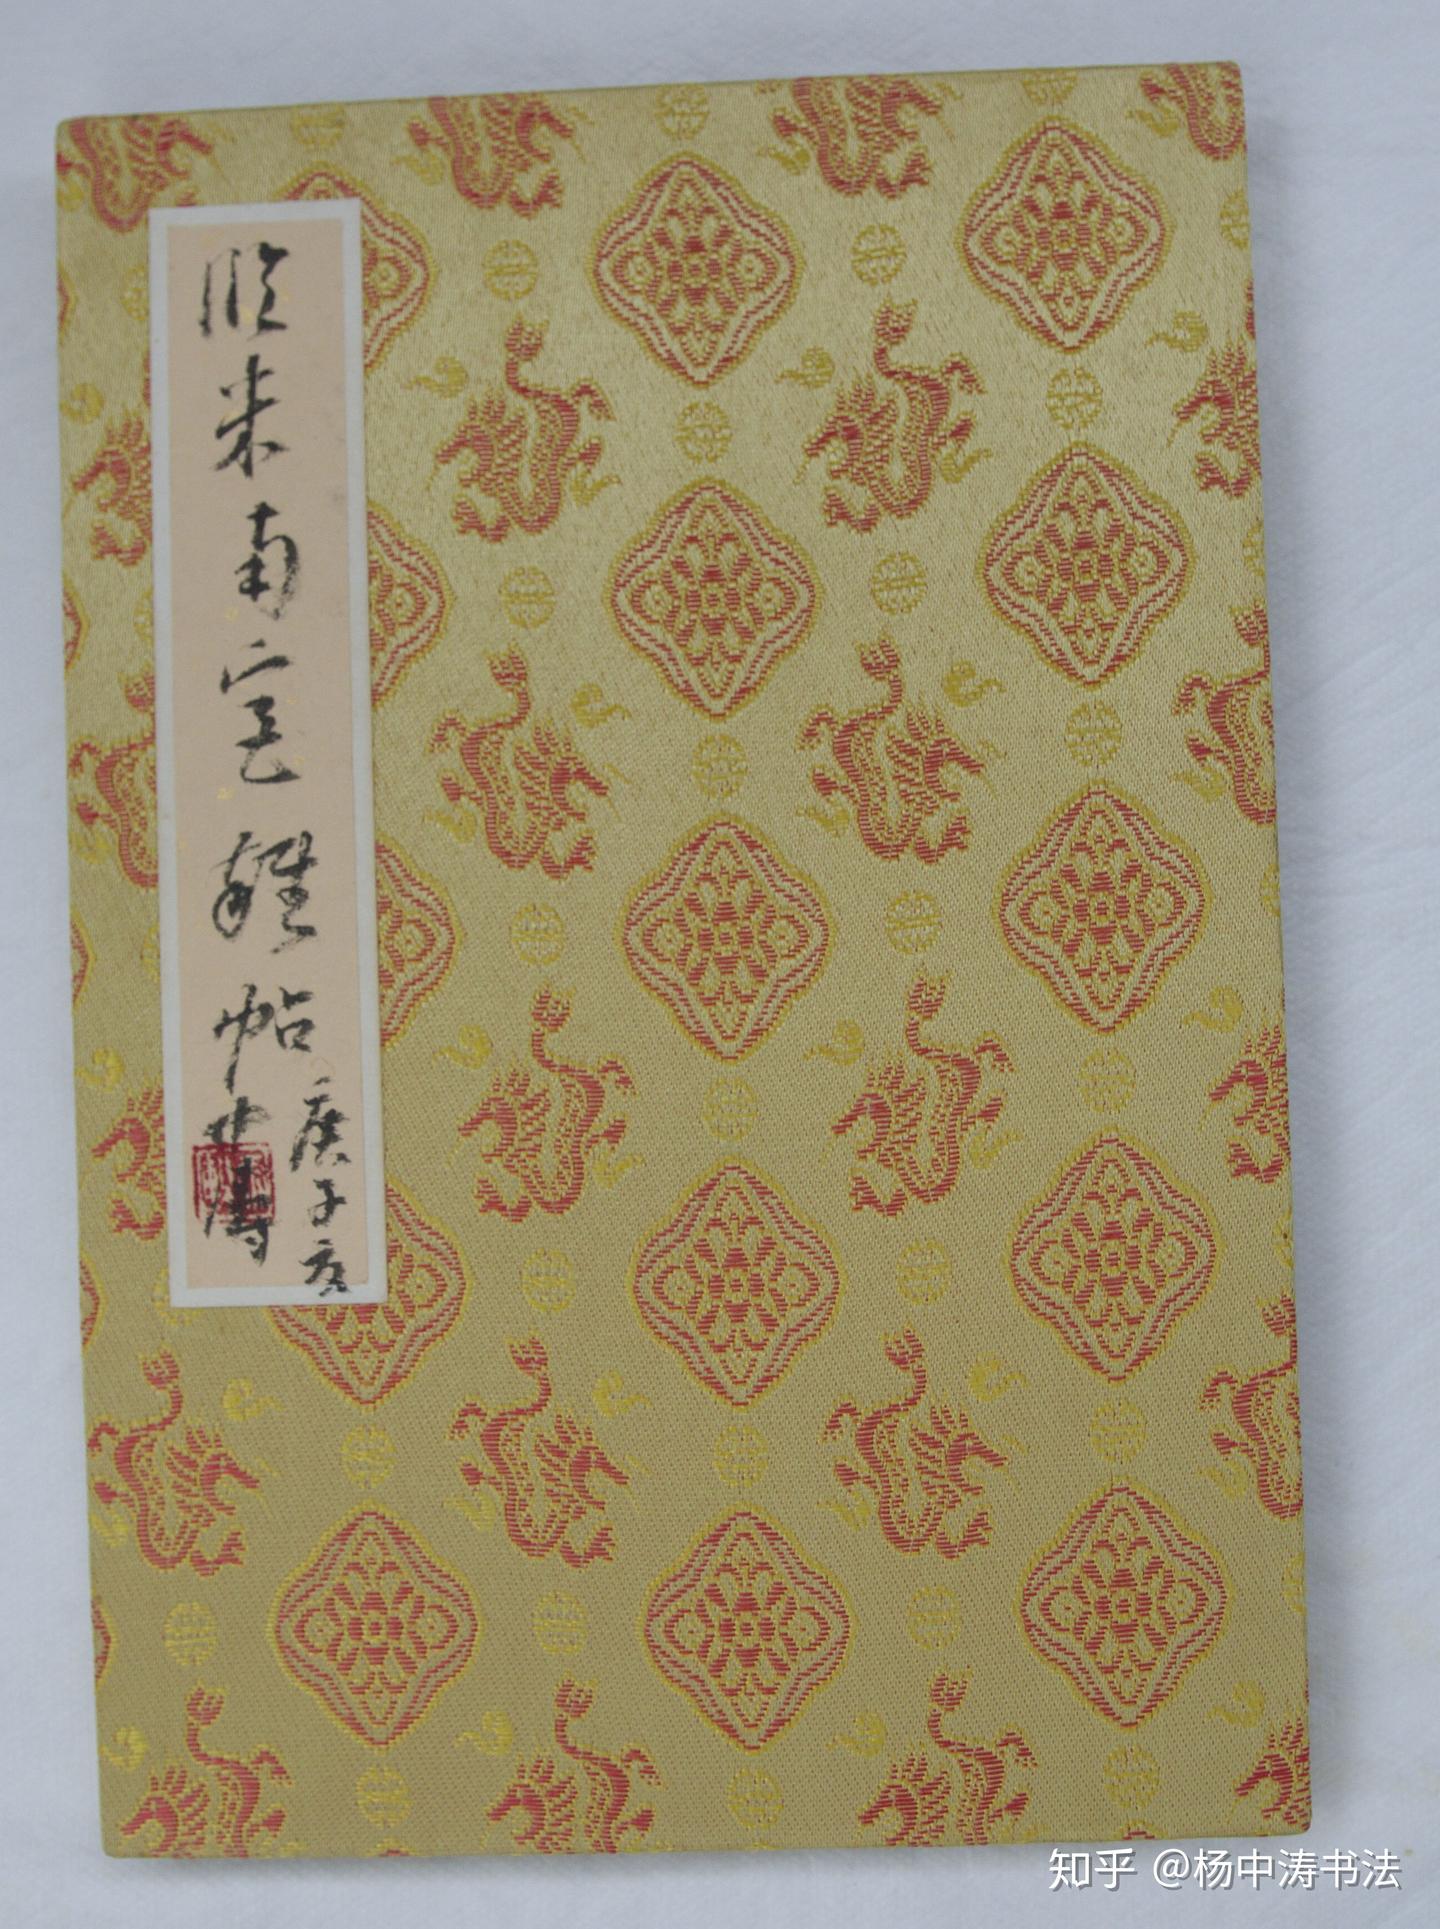 临米南宫离帖
庚子夏
中涛
知乎 @杨中涛书法